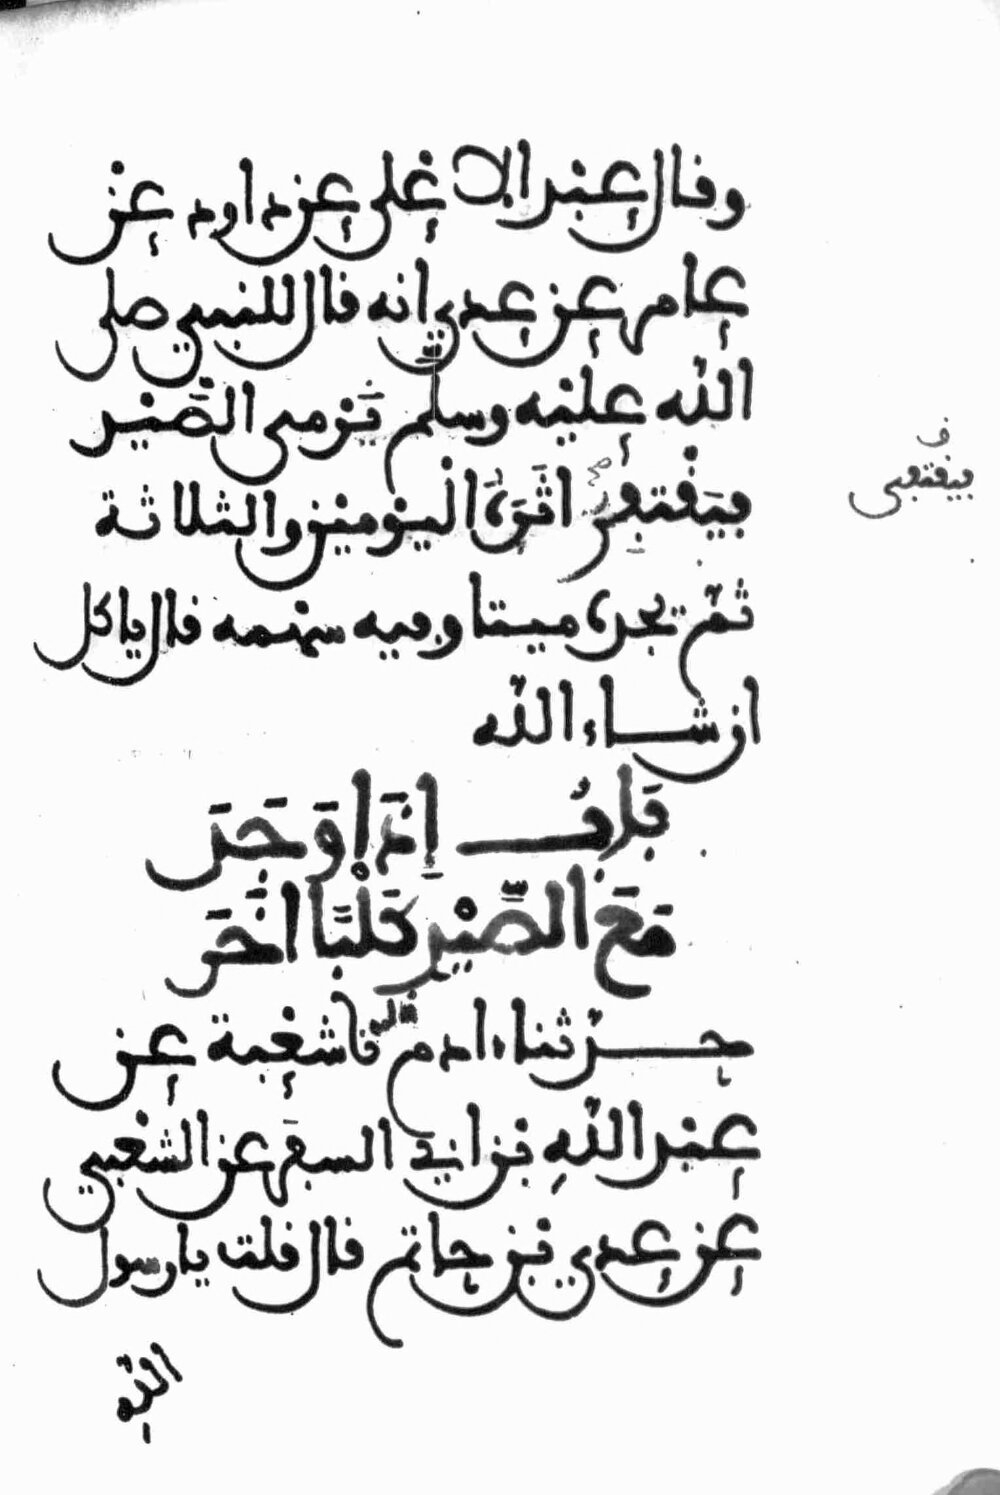 وقال عبد الاعلى عن داود عن
عامر عن عدي انه قال للنبي صلى
الله عليه وسلم يَرْمى الصَّيْد
فيَفْتَفِر اثَرَهُ اليومين والثلاثة
ثم يجده ميتا وفيه سهمه قال ياكل
ان شاء الله
بَابُ إِذَا وَجَدَ
مَعَ الصَّيْدِ كَلْبًا اخَرَ
حدثناء ادم نا شعبة عن
عبد اللهِ بن ابي السفر عن الشعبي
عن عدي بن حاتم قال قلت يا رسول
الله
فيفتفى